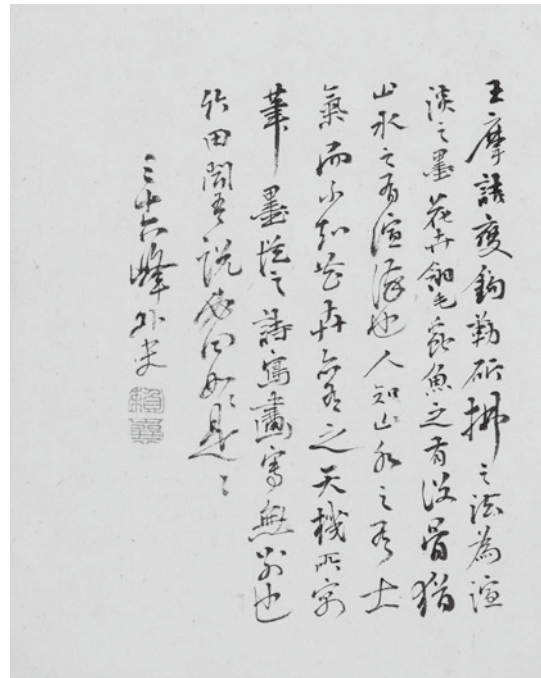 王摩詰變鉤勒斫拂之法為渲
淡之墨花卉翎毛蟲魚之有没骨猶
山水之有渲淡也人知山水之有士
氣而不知花卉亦有之天機所寓
筆墨從之詩寫畫寫無別也
竹田聞吾説曰如是〻
三十六峰外史
賴襄